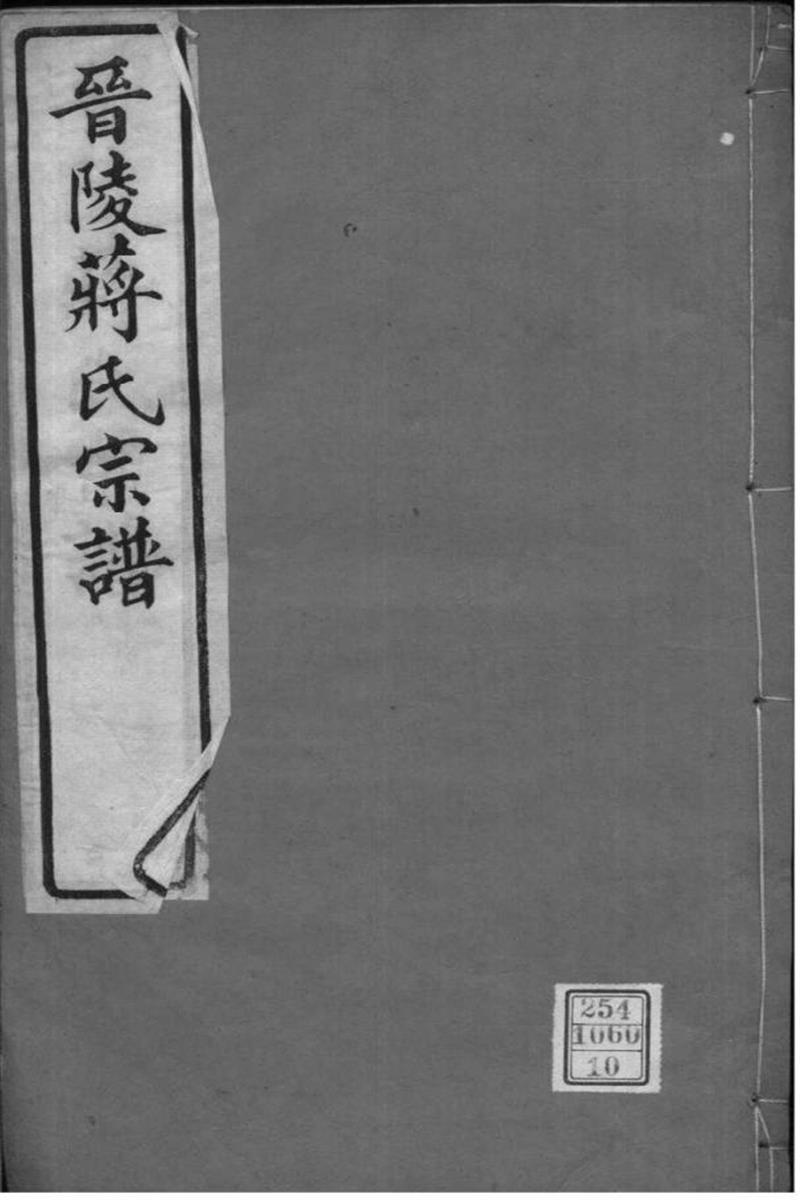 晉陵蔣氏宗譜
254
1060
10